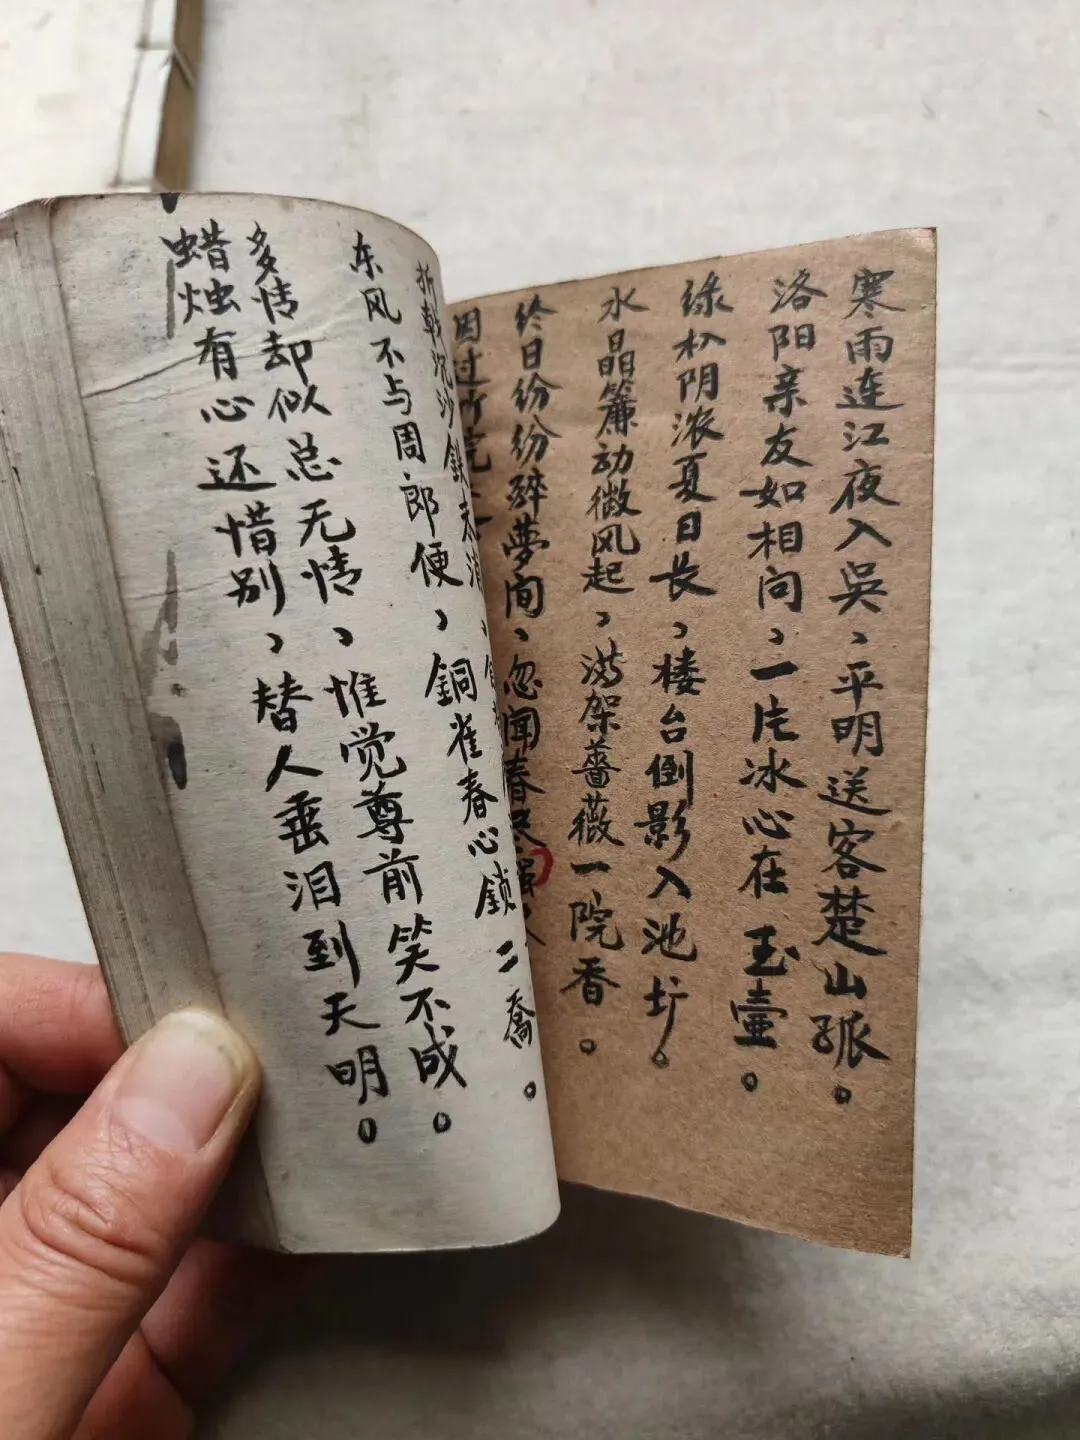 寒雨连江夜入吳、平明送客楚山孤。
洛阳亲友如相问、一片冰心在玉壶。
绿朳阴浓夏日长、楼台倒影入池圹。
水晶簾动微风起、满架薔薇一院香。
终日纷纷醉夢间、忽闻春尽强
因过竹院
折戟沉沙鉄未消、
东风不与周郎便、銅雀春心鎖二喬。
多情却似总无情、惟觉尊前笑不成。
蜡烛有心还惜别、替人垂泪到天明。